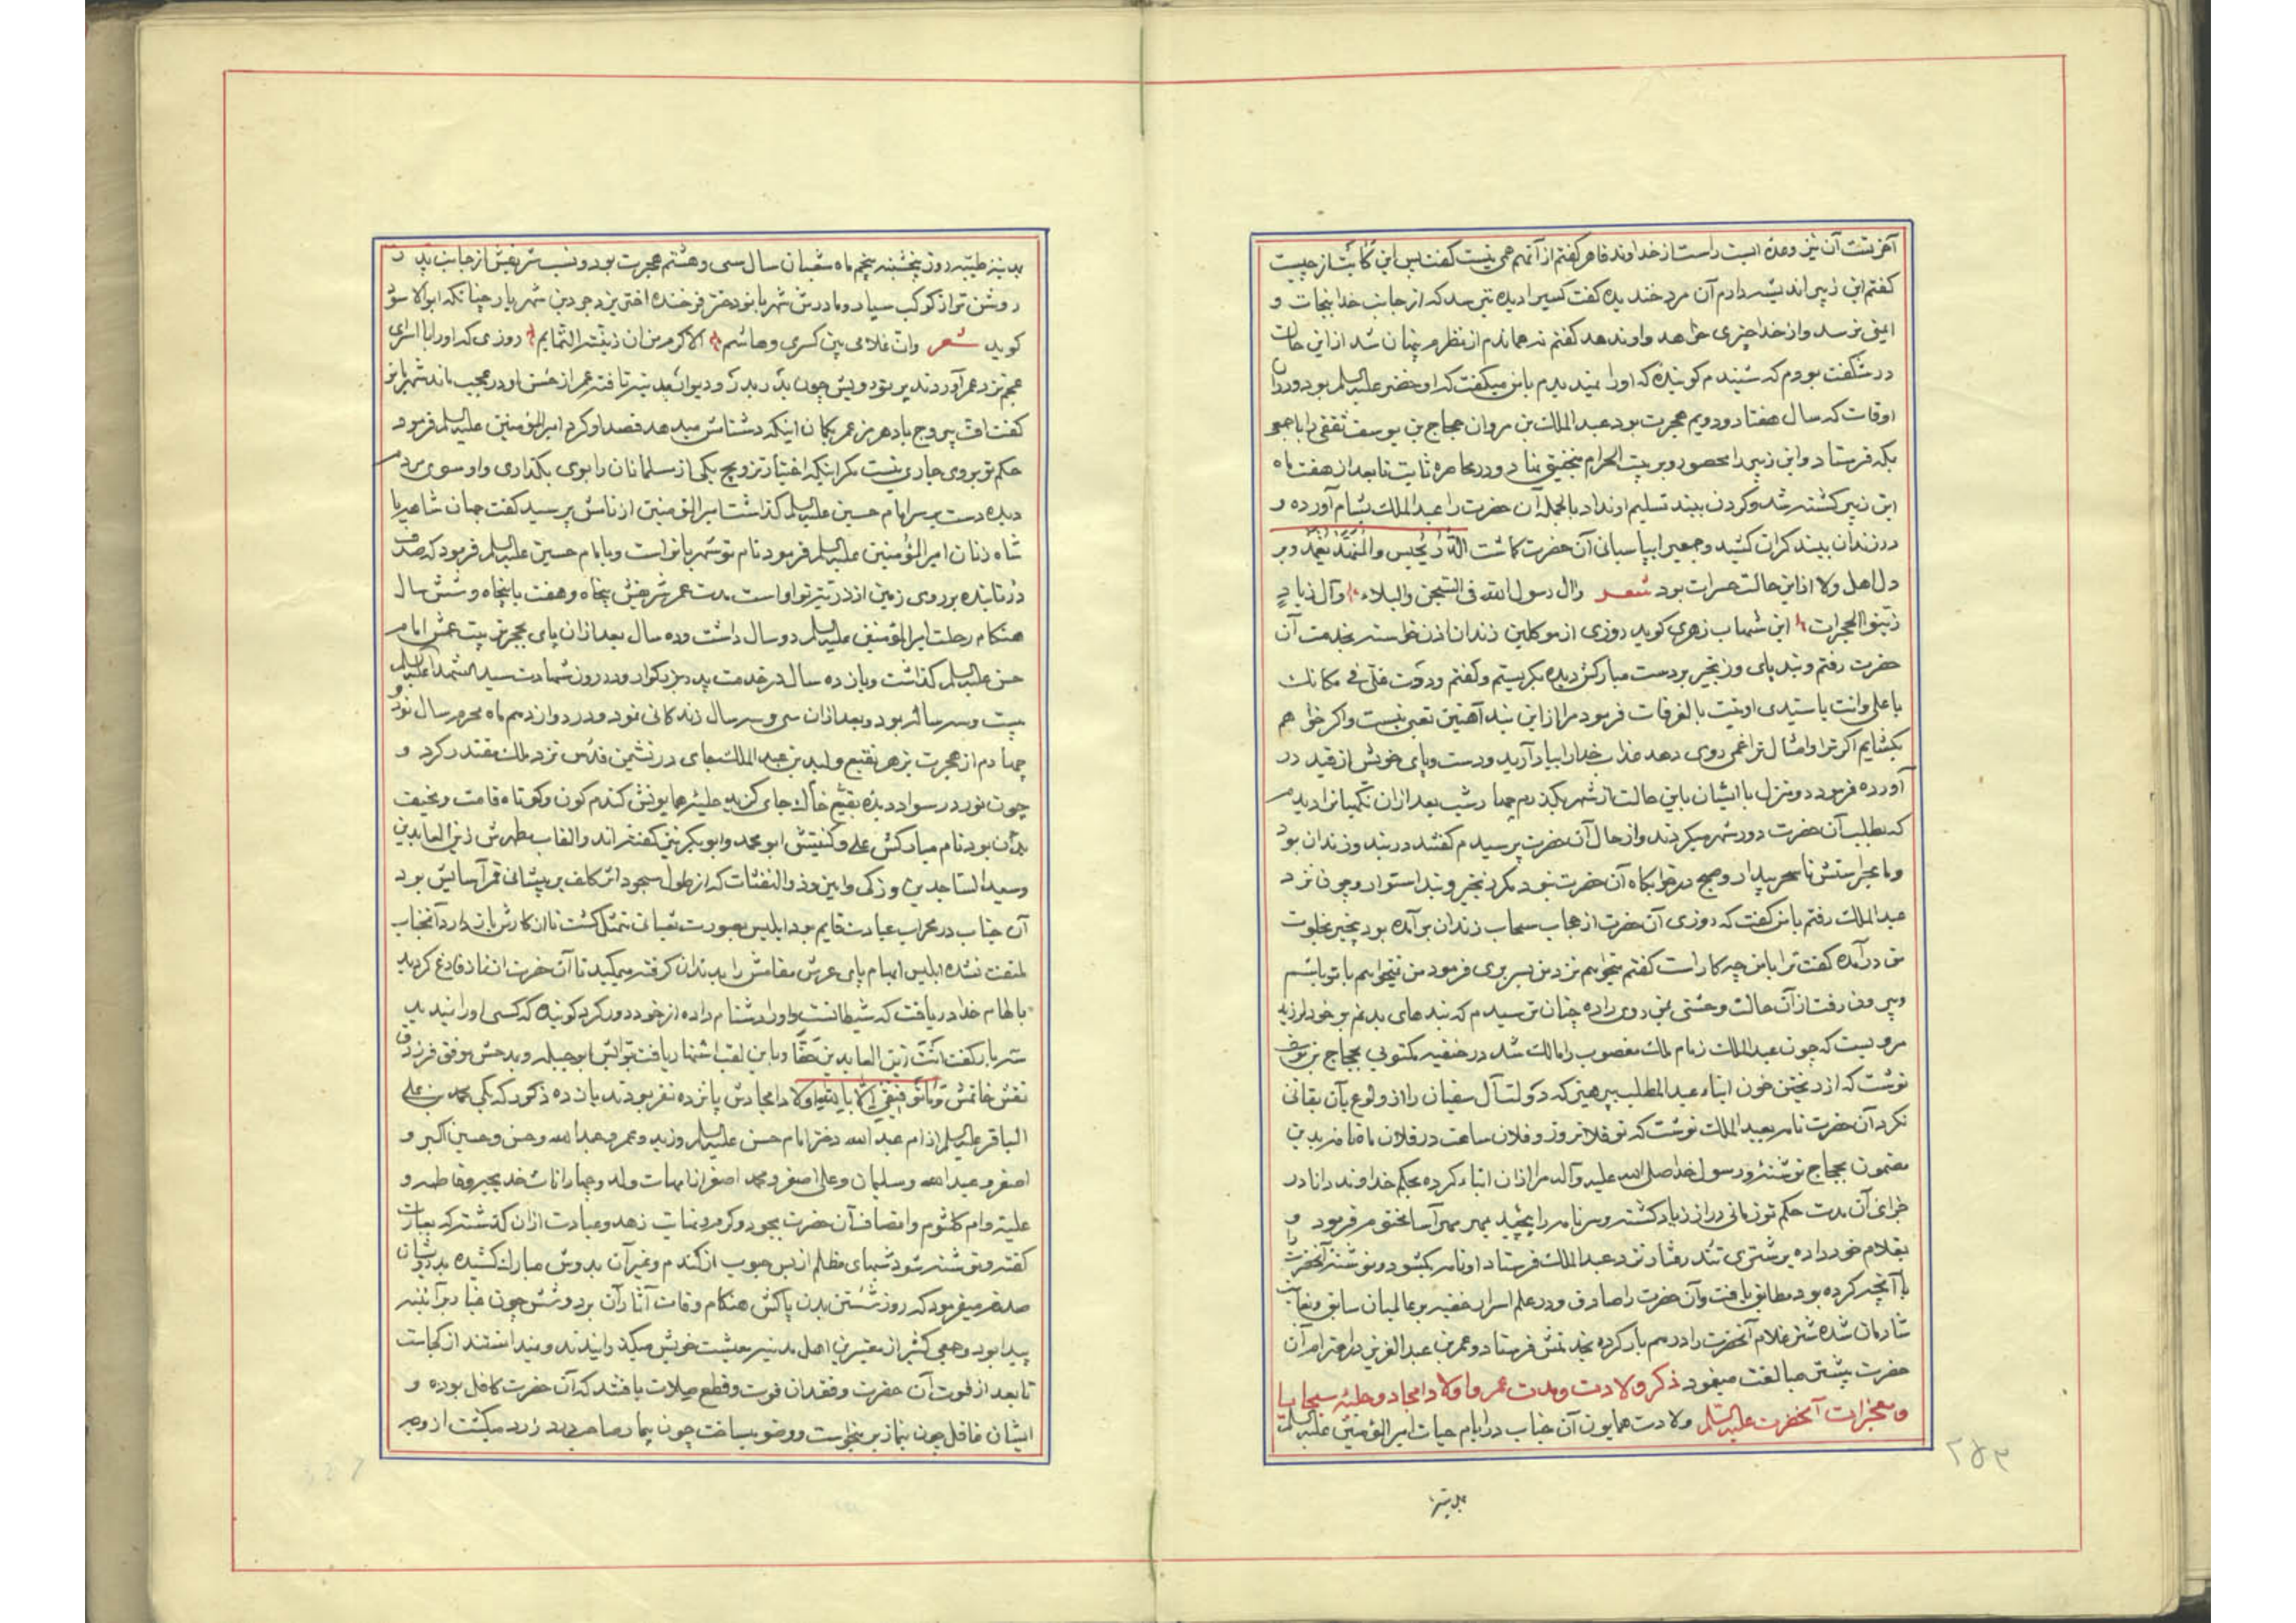 آخرتست آن نیز وعده ایست راست از خداوند قاهر گفتم از آنهم همی نیست گفت پس این کآبت از چیست
گفتم ابن زبیر اندیشه دارم آن مرد خندیده گفت کسیرا دیده تترسد که از جانب خدا بنجات و
ایمنی نرسد و از خدا چیزی خواهد و او ندهد گفتم نه هماندم از نظرم پنهان شد از این حالت
در شگفت بودم که شنیدم گوینده که او را نمیدیدم با من میگفت که او خضر علیه السلم بود و در آن
اوقات که سال هفتاد و دویم هجرت بود عبد الملک بن مروان حجاج بن یوسف ثقفی را با جمعی
بمکه فرستاد و ابن زبیر را محصور و بر بیت الحرام منجنیق نهاد و در محاصره ثابت تا بعد از هفت ماه
ابن زبیر کشته شد و گردن ببند تسلیم او نداد بالجمله آن حضرت را عبد الملک بشام آورده و
در زندان ببند گران کشید و جمعیرا بپاسبانی آن حضرت گماشت
دل اهل ولا از این حالت حسرات بود شعر وآل رسول الله فی السجن والبلاء وآل زیاد
زینوا الحجرات ابن شهاب زهری گوید روزی از موکلین زندان اذن خواسته بخدمت آن
حضرت رفتم و بند پای و زنجیر بر دست مبارکش دیده بگریستم و گفتم وددت فی مکانک
یا علی وانت یا سیدی اوتیت بالغرفات فرمود مرا از این بند آهنین تعبی نیست و اگر خواهم
بگشایم اگر ترا و امثال ترا غمی روی دهد عذاب خدا را بیاد آرید و دست و پای خویش از قید در
آورده فرمود دو منزل با ایشان باین حالت از شهر بگذرم چهار شب بعد از آن نگهبانرا دیدم
که بطلب آن حضرت دور شهر میگردند و از حال آن حضرت پرسیدم گفتند در بند و زندان بود
و ما بحراستش تا سحر بیدار و صبح در خوابگاه آن حضرت نبود مگر زنجیر و بند استوار و چون نزد
عبد الملک رفتم با من گفت که روزی آن حضرت از حجاب سحاب زندان برآمده بود بخلوت
من درآمده گفت ترا با من چه کار است گفتم میخواهم نزد من بسر بری فرمود من نمیخواهم با تو باشم
و بیرون رفت از آن حالت وحشتی بمن روی داده چنان ترسیدم که بندهای بدنم بر خود لرزید
مرویست که چون عبد الملک زمام ملک مغصوب را مالک شد در خفیه مکتوبی بحجاج بن یوسف
نوشت که از ریختن خون ابناء عبد المطلب بپرهیز که دولت آل سفیان را از ولوع بآن بقائی
نکرد آن حضرت نامه بعبد الملک نوشت که تو فلانروز و فلان ساعت در فلان ماه نامه بدین
مضمون بحجاج نوشته و رسول خدا صلی الله علیه وآله مرا از آن انباء کرده بحکم خداوند دانا در
جزای آن مدت حکم تو زمانی دراز زیاد گشته و سر نامه را پیچید بمهر مهر آسا مختوم فرمود و
بغلام خود داده بر شتری تند رفتار نزد عبد الملک فرستاد او نامه بگشود و نوشته آنحضرت را
با آنچه کرده بود مطابق یافت و آن حضرت را صادق و در علم اسرار خفیه بر عالمیان سابق و بغایت
شادمان شده شتر غلام آنحضرت را درهم بار کرده بخدمتش فرستاد و عمر بن عبد العزیز در احترام آن
حضرت پیشتر مبالغت مینمود ذکر ولادت و مدت عمر و اولاد امجاد و حلیه سجایا
و معجزات آنحضرت علیه السلم ولادت همایون آن جناب در ایام حیات امیر المؤمنین علیه السلم
بمدینه
۲۵۳
بمدینه طیبه روز پنجشنبه پنجم ماه شعبان سال سی و هشتم هجرت بود و نسب شریفش از جانب پدر
روشن تر از کوکب سیار و مادرش شهربانو دختر فرخنده اختر یزدجرد بن شهریار چنانکه ابو الاسود
گوید شعر وان غلاما بین کسری وهاشم لاکرم من ان نیطت التمایم روزی که او را با اسرای
عجم نزد عمر آوردند پرتو رویش چون بدر بدر و دیوار مدینه تافته عمر از حسن او در عجب ماند شهربانو
گفت اف بیروج بادهرمز عمر بگمان اینکه دشنامش میدهد قصد او کرد امیر المؤمنین علیه السلم فرمود
حکم تو بر وی جاری نیست مگر اینکه اختیار تزویج یکی از مسلمانان را بوی بگذاری و او سوی مردم
دیده دست بر سر امام حسین علیه السلم گذاشت امیر المؤمنین از نامش پرسید گفت جهان شاه یا
شاه زنان امیر المؤمنین علیه السلم فرمود نام تو شهربانو است و بامام حسین علیه السلم فرمود که صدف
در تابنده بر روی زمین از ذریه تو او است مدت عمر شریفش پنجاه و هفت یا پنجاه و شش سال
هنگام رحلت امیر المؤمنین علیه السلم دو سال داشت و ده سال بعد از آن با عمش امام
حسن علیه السلم گذاشت و یازده سال در خدمت پدر بزرگوار و در روز شهادت سید الشهدا علیه السلم
بیست و سه ساله بود و بعد از آن سی و سه سال زندگانی نمود و در دوازدهم ماه محرم سال نود و
چهارم از هجرت بزهر نقیع ولید بن عبد الملک جای در نشیمن قدس نزد ملک مقتدر کرد و
چون نور در سواد دیده بقیع خاک جای گزید حلیه همایونش گندم گون و کوتاه قامت و نحیف
بدن بود نام مبارکش علی و کنیتش ابو محمد و ابو بکر نیز گفته اند و القاب مطهرش زین العابدین
و سید الساجدین و زکی و امین و ذو الثفنات که از طول سجود اثر کلف بر پیشانی قمر آسایش بود
آن جناب در محراب عبادت قایم بود ابلیس بصورت ثعبانی متمثل گشت تا از آن کارش باز دارد آنجناب
ملتفت نشده ابلیس ابهام پای عرش مقامش را بدندان گرفته میمکید تا آن حضرت از نماز فارغ گردید
بالهام خدا دریافت که شیطانست و او را دشنام داده از خود دور کرد گوینده که کسی او را ندید
سه بار بگفت انت زین العابدین حقا و باین لقب اشتهار یافت بوابش ابو جبله و مدحش موفق فرزدق
نقش خاتمش وما توفیقی الا بالله اولاد امجادش پانزده نفر بودند یازده ذکور که یکی محمد بن علی
الباقر علیه السلم از ام عبد الله دختر امام حسن علیه السلم و زید و عمر و عبد الله و حسن و حسین اکبر و
اصغر و عبد الله و سلیمان و علی اصغر و محمد اصغر از امهات ولد و چهار اناث خدیجه و فاطمه و
علیه و ام کلثوم و اتصاف آن حضرت بجود و کرم و نهایت زهد و عبادت از آن گذشته که بعبارت
گفته و نوشته شود شبهای مظلم از بس حبوب از گندم و غیر آن بدوش مبارک کشیده بدرویشان
صدقه میفرمود که روز شستن بدن پاکش هنگام وفات آثار آن بر دوشش چون غبار بر آئینه
پیدا بود و جمعی کثیر از معتبرین اهل مدینه معیشت خویش میگذرانیدند و نمیدانستند از کجاست
تا بعد از فوت آن حضرت و فقدان قوت و قطع صلات یافتند که آن حضرت کافل بوده و
ایشان غافل چون بنماز برمیخواست و وضو میساخت چون بیمار صاحب درد زرد میگشت از وجه